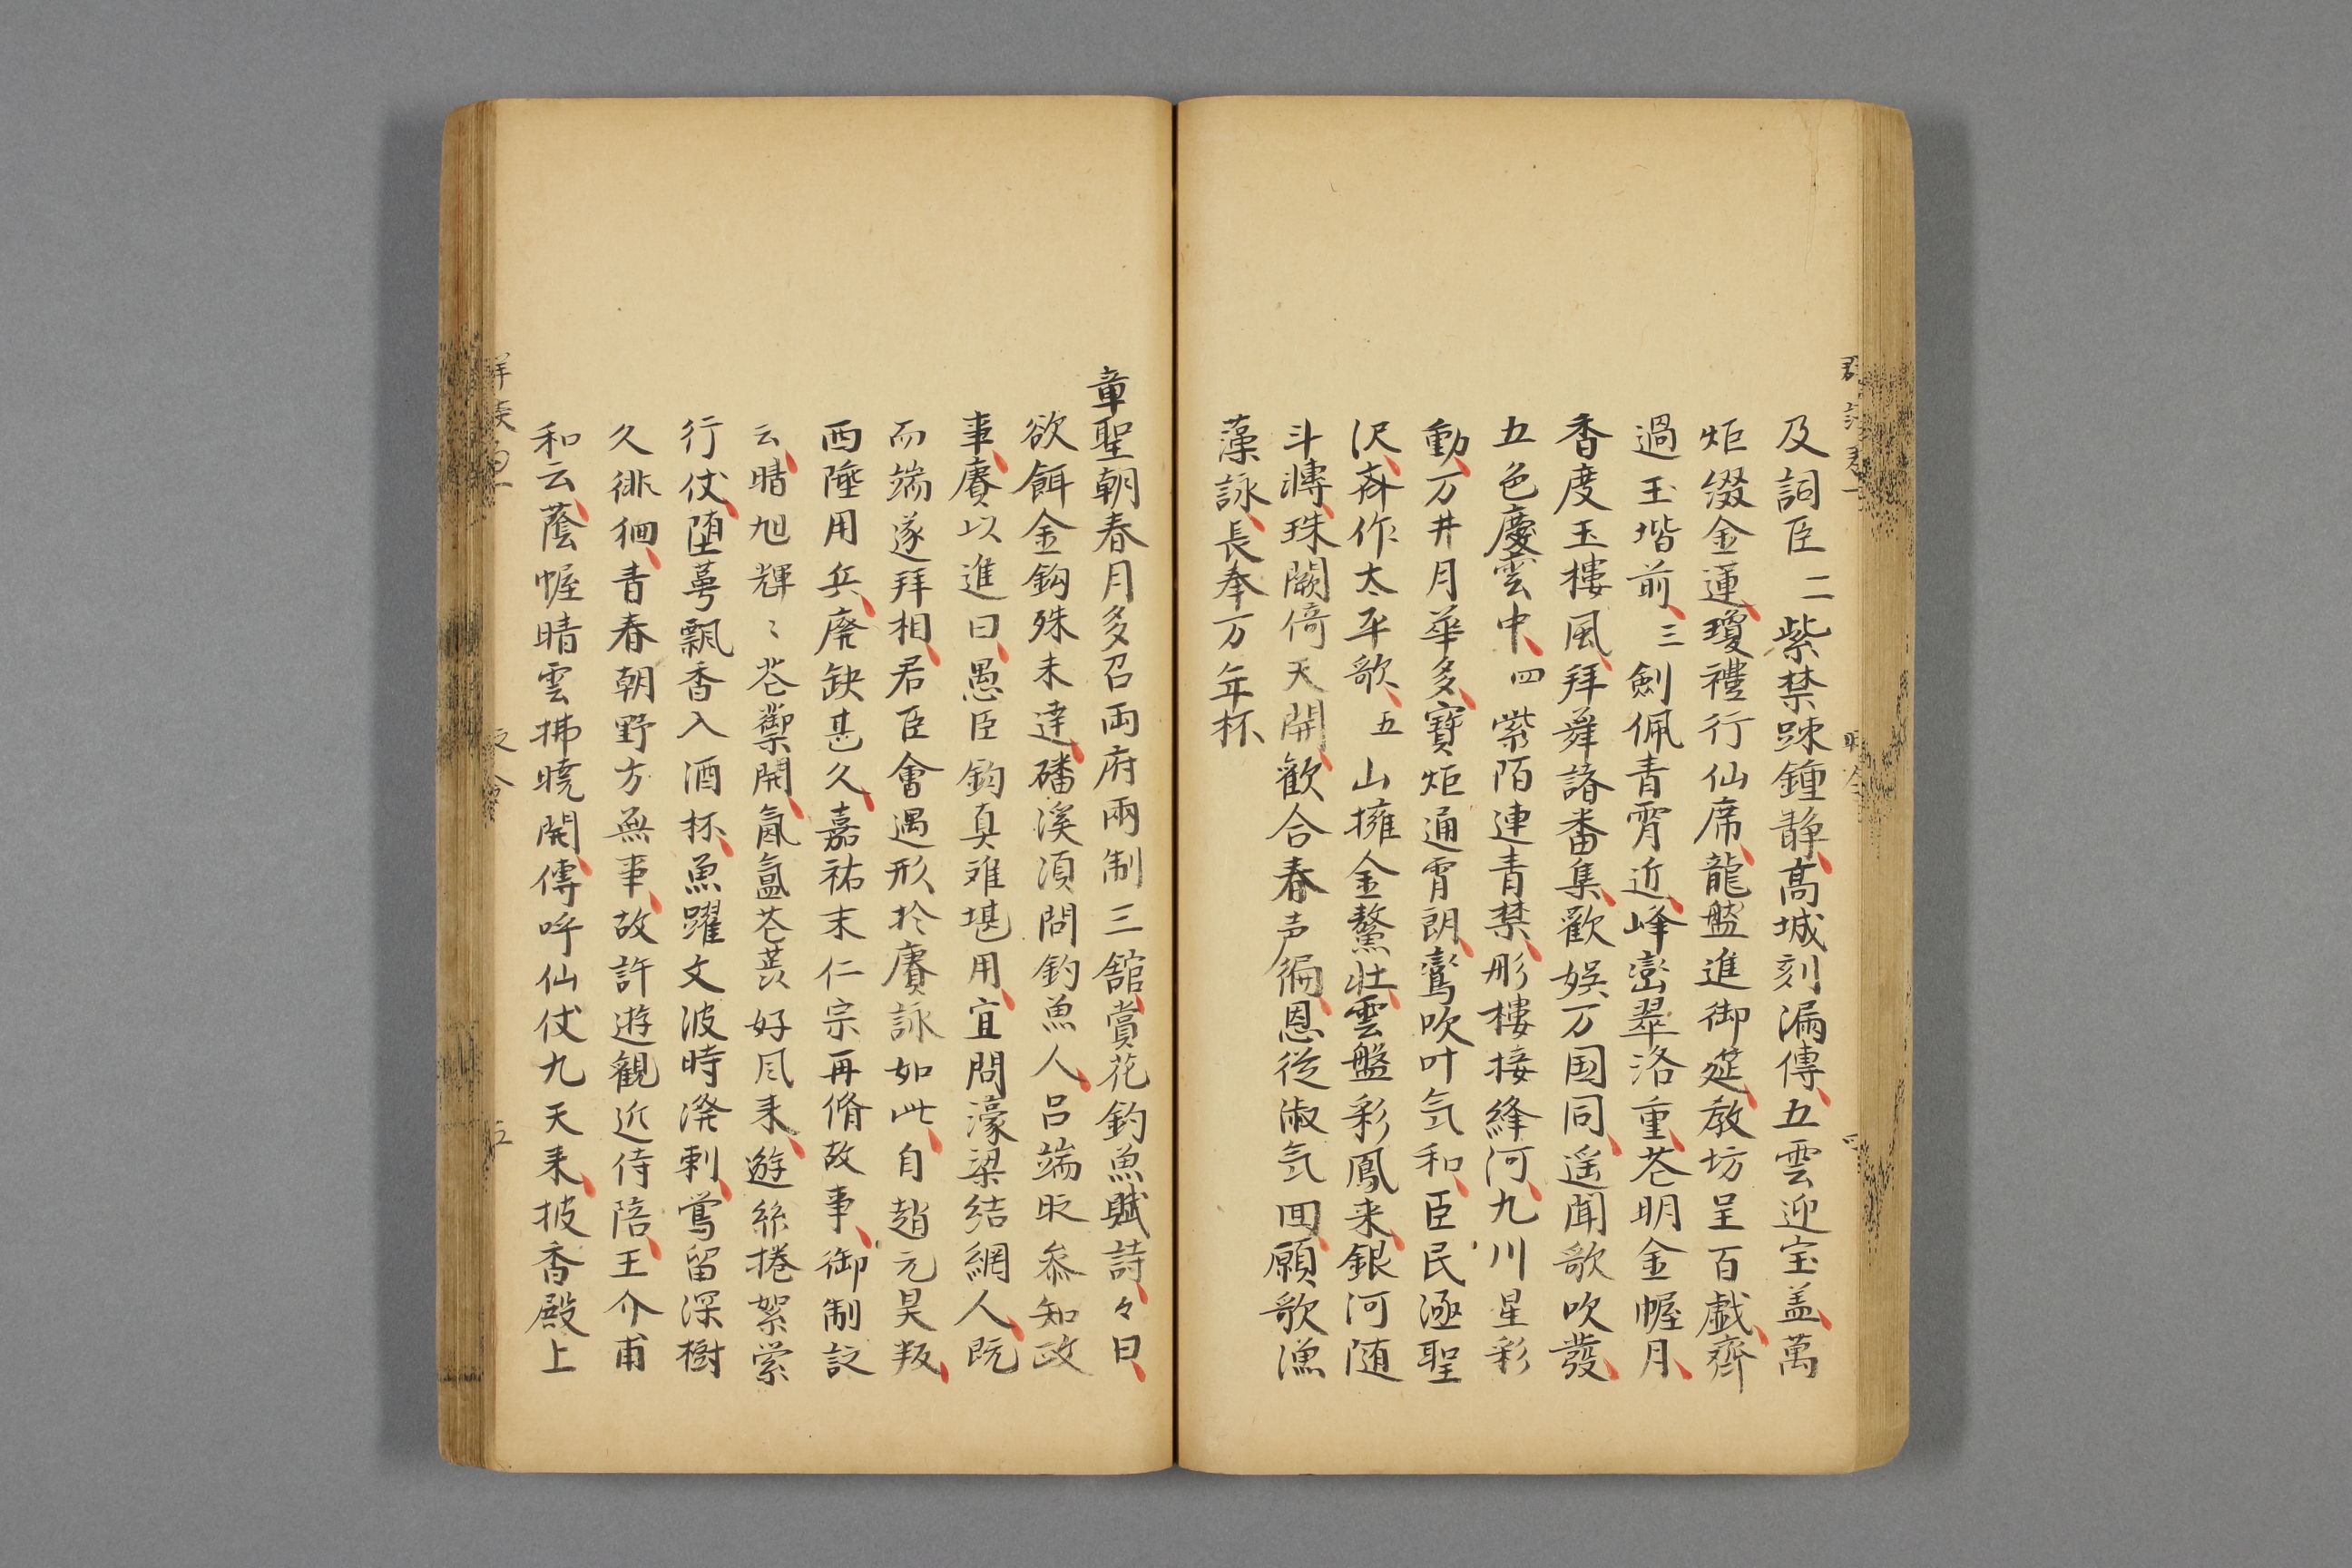 及詞臣 二 紫禁踈鐘静髙城刻漏傳五雲迎宝盖萬
炬綴金蓮瓊禮行仙席龍盤進御筵教坊呈百戯齊
過玉堦前 三 劍佩青霄近峰巒翠洛重花明金幄月
香度玉樓風拜舞諸番集歡娯万国同遥聞歌吹發
五色慶雲中 四 紫陌連青禁彤樓接絳河九川星彩
動万井月華多寶炬通霄朗鸞吹叶気和臣民涵聖
沢斉作太平歌 五 山擁金鰲壮雲盤彩鳳来銀河随
斗轉珠闕倚天開歡合春声徧恩從淑気回願歌漁
藻詠長奉万年杯
章聖朝春月多召両府兩制三舘賞花釣魚賦詩々曰
欲餌金鈎殊未達磻溪須問釣魚人吕端时叅知政
事賡以進曰愚臣鈎真难堪用宜問濠梁结網人既
而端遂拜相君臣會遇形於賡詠如此自趙元昊叛
西陲用兵廃缺甚久嘉祐末仁宗再脩故事御制詩
云晴旭輝〻苍禦開氤氲花蕊好风来遊絲捲絮縈
行仗堕萼飄香入酒杯魚躍文波時溌剌鶯留深樹
久徘徊青春朝野方無事故許遊觀近侍陪王介甫
和云蔭幄晴雲拂曉開傳呼仙仗九天来披香殿上